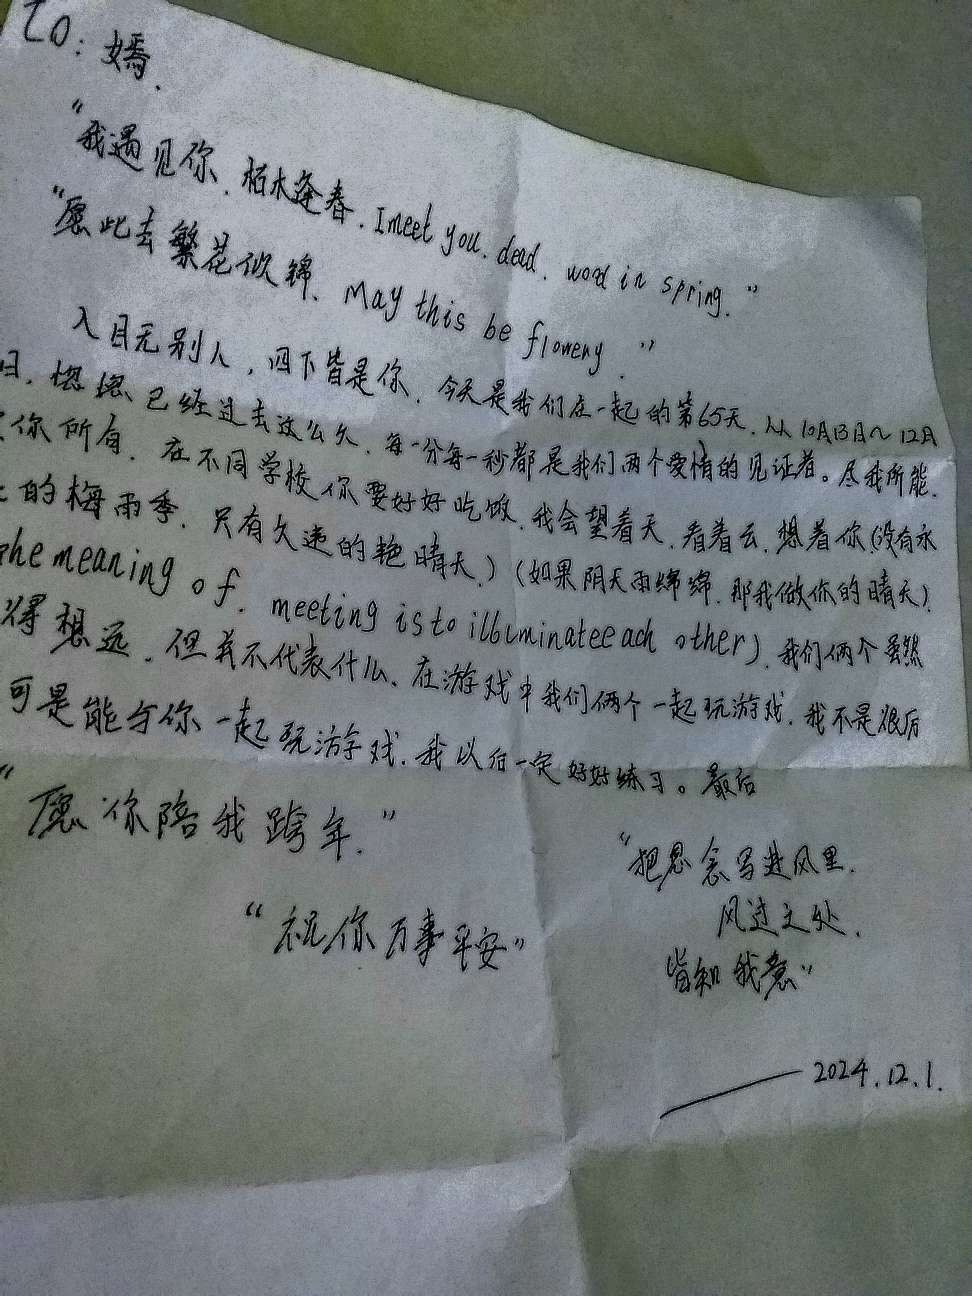 TO: 嫣.
“我遇见你、枯木逢春. I meet you. dead. wood in spring.”
“愿此去繁花似锦、May this be flowery.”
入目无别人，四下皆是你、今天是我们在一起的第65天、从10月13日～12月
日、悠悠已经过去这么久、每一分每一秒都是我们两个爱情的见证者。尽我所能.
你所有、在不同学校你要好好吃饭、我会望着天、看着云、想着你(没有永
的梅雨季、只有久违的艳晴天.)(如果阴天雨绵绵、那我做你的晴天)
the meaning of. meeting is to illuminate each other)、我们俩个虽然
得想远、但并不代表什么、在游戏中我们俩个一起玩游戏、我不是很厉
可是能与你一起玩游戏、我以后一定好好练习。最后
“愿你陪我跨年.”
“祝你万事平安”
“把思念写进风里.
风过之处.
皆知我意”
——2024.12.1.